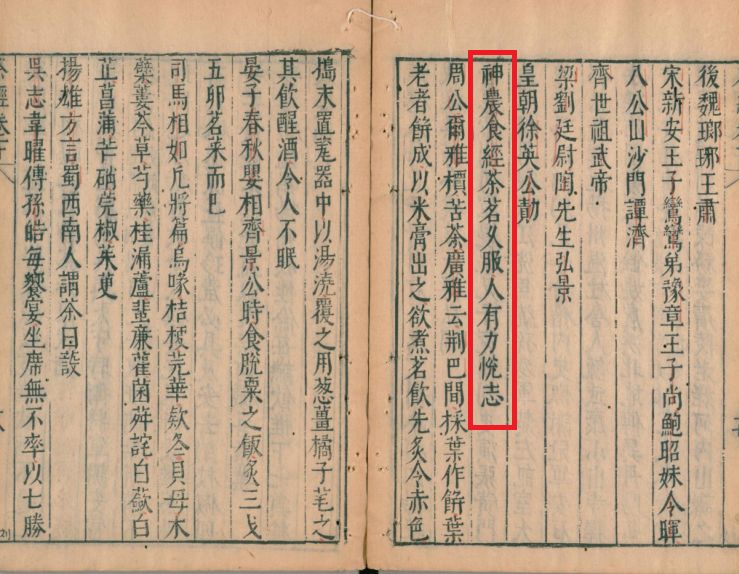 後魏瑯琊王肅
宋新安王子鸞鸞弟豫章王子尚鮑昭妹令暉
八公山沙門譚濟
齊世祖武帝
梁劉廷尉陶先生弘景
皇朝徐英公勣
神農食經茶茗久服人有力恱志
周公爾雅檟苦茶廣雅云荆巴間採葉作餅葉
老者餅成以米膏出之欲煮茗飲先炙令赤色
搗末置瓷器中以湯澆覆之用葱薑橘子芼之
其飲醒酒令人不眠
晏子春秋嬰相齊景公時食脫粟之飯炙三戈
五卵茗茱而巳
司馬相如凡將篇烏喙桔梗芫華欵冬貝母木
蘖蔞芩草芍藥桂漏蘆蜚廉雚菌荈詫白蘞白
芷菖蒲芒硝莞椒茱萸
揚雄方言蜀西南人謂茶曰蔎
吳志韋曜傳孫皓每饗宴坐席無不率以七勝
茶經卷下